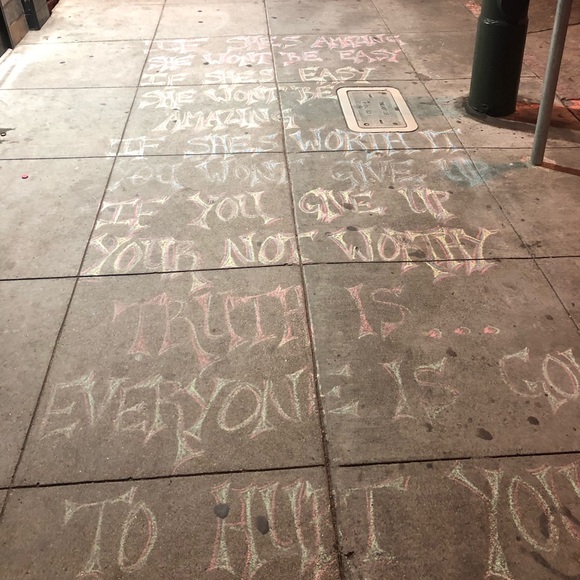 IF SHE'S AMAZING
SHE WONT BE EASY
IF SHE'S EASY
SHE WONT BE
AMAZING
IF SHE'S WORTH IT
YOU WONT GIVE UP
IF YOU GIVE UP
YOUR NOT WORTHY
TRUTH IS...
EVERYONE IS GO
TO HURT YOU